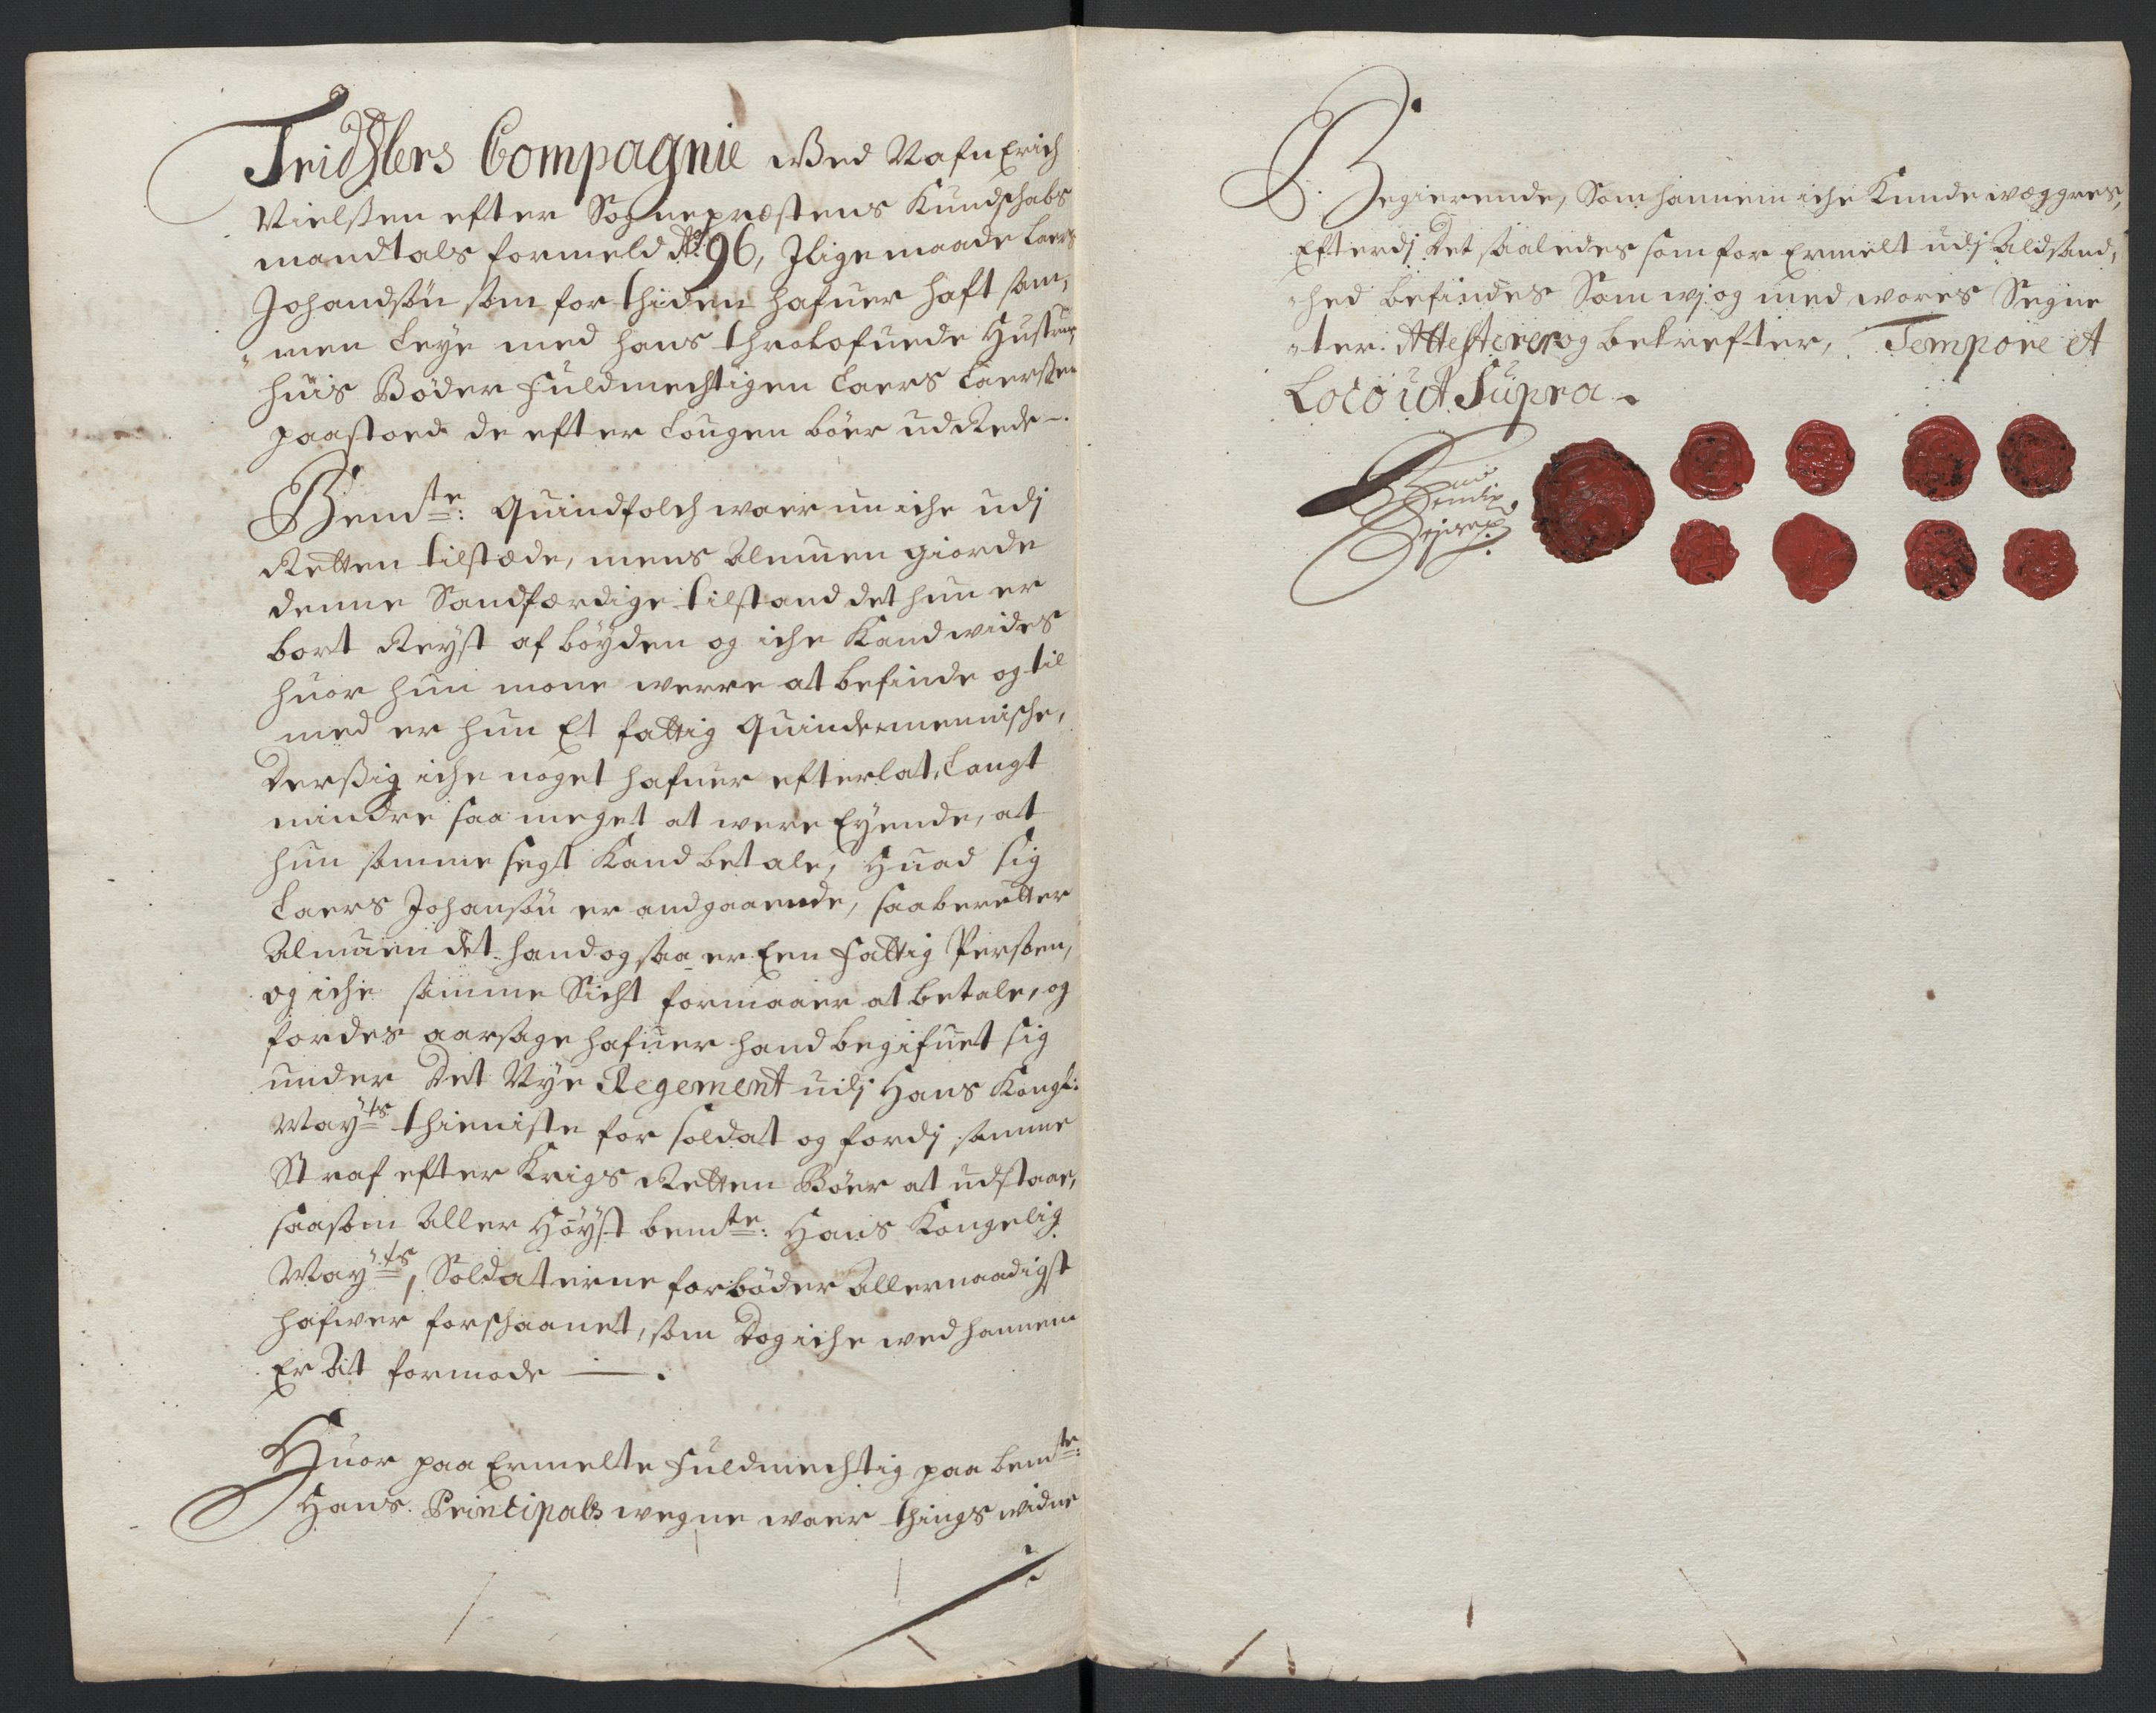 Tridsslers Compagnie wed Nafn Erich
Nielssen efter Sognepræstens Kundschabs
mandtals formeld Ao: 96, Jligemaade Laers
Johandsøn som for thiden hafuer haft sam¬
men Leye med hans throlofuede Hustrue,
huis Bøder fuldmechtigen Laers Laerssen
paastoed de efter Lougen bøer udRede.
Bemte: Quindfolch waer nu iche udj
Retten tilstæde, mens Almuen giorde
denne Sandfærdige tilstand det hun er
bort Reyst af bøyden og iche Kand wides
huor hun mone werre at befinde og til
med er hun Et fattig Quindermennische,
Der sig iche noget hafuer efterlat, Langt
mindre saa meget at were Eyende, at
hun samme segt Kand betale, Huad sig
Laers Johansøn er andgaaende, saa beretter
Almuen det hand ogsaa er Een fattig Persoen,
og iche samme Sicht formaaer at betale, og
for des aarsage hafuer hand begifuet sig
under Det Nye Regement udj Hans Kongl:
Mayts thieniste for soldat og fordj samme
Straf efter Krigs Retten Bøer at udstaae,
saasom Aller Høyst bemte: Hans Kongelig
Mayts, Soldaterne for bøder Allernaadigst
hafwer forschaanet, som Dog iche wed hannem
Er At formode ——.
Huor paa Ermelte fuldmechtig paa bemte:
Hans Principals wegne waer things widne
Begierende, Som hannem iche Kunde wæggres,
Efterdj Det saaledes som for Ermelt udj Aldsand¬
hed befindes Som wj og med wores Segne
ter Attesterer og bekrefter, Tempore et
Loco ut Supra.